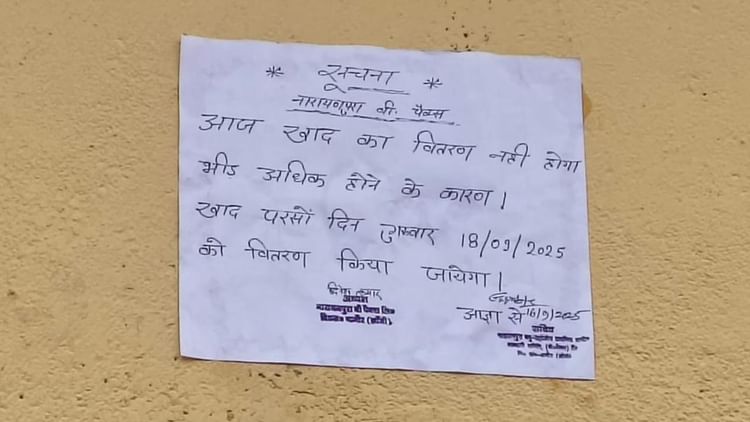 * सूचना *
नारायणपुरा वी. पैक्स
आज खाद का वितरण नही होगा
भीड अधिक होने के कारण।
खाद परसों दिन गुरुवार 18/09/2025
को वितरण किया जायेगा।
अध्यक्ष
आज्ञा से 16/9/2025
सचिव